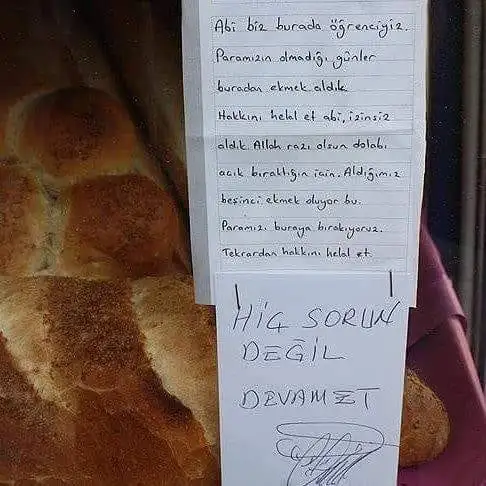 Abi biz burada öğrenciyiz.
Paramızın olmadığı günler
buradan ekmek aldık.
Hakkını helal et abi, izinsiz
aldık. Allah razı olsun dolabı
açık bıraktığın için. Aldığımız
beşinci ekmek oluyor bu.
Paramızı buraya bırakıyoruz.
Tekrardan hakkını helal et.
HİÇ SORUN
DEĞİL
DEVAM ET